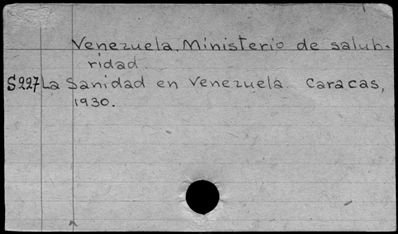 Venezuela. Ministerio de salub-
ridad.
S227 La Sanidad en Venezuela. Caracas,
1930.